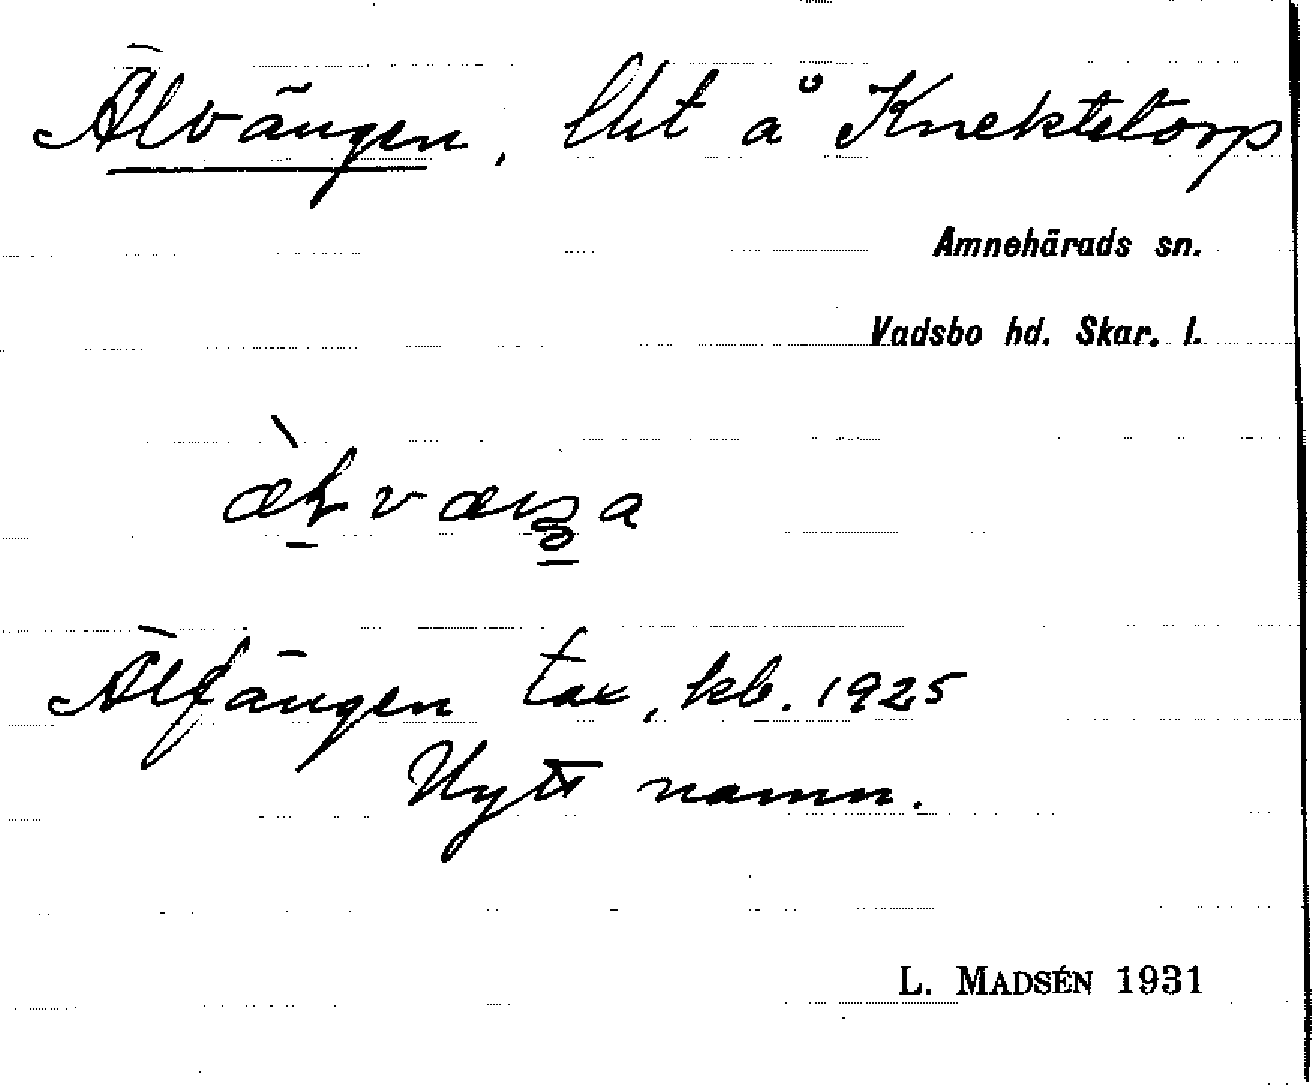 Älvängen, lht å Knektetorp
Amnehärads sn.
Vadsbo hd. Skar. l.
Älfängen tax, kb. 1925
Nytt namn.
L. MADSÉN 1931